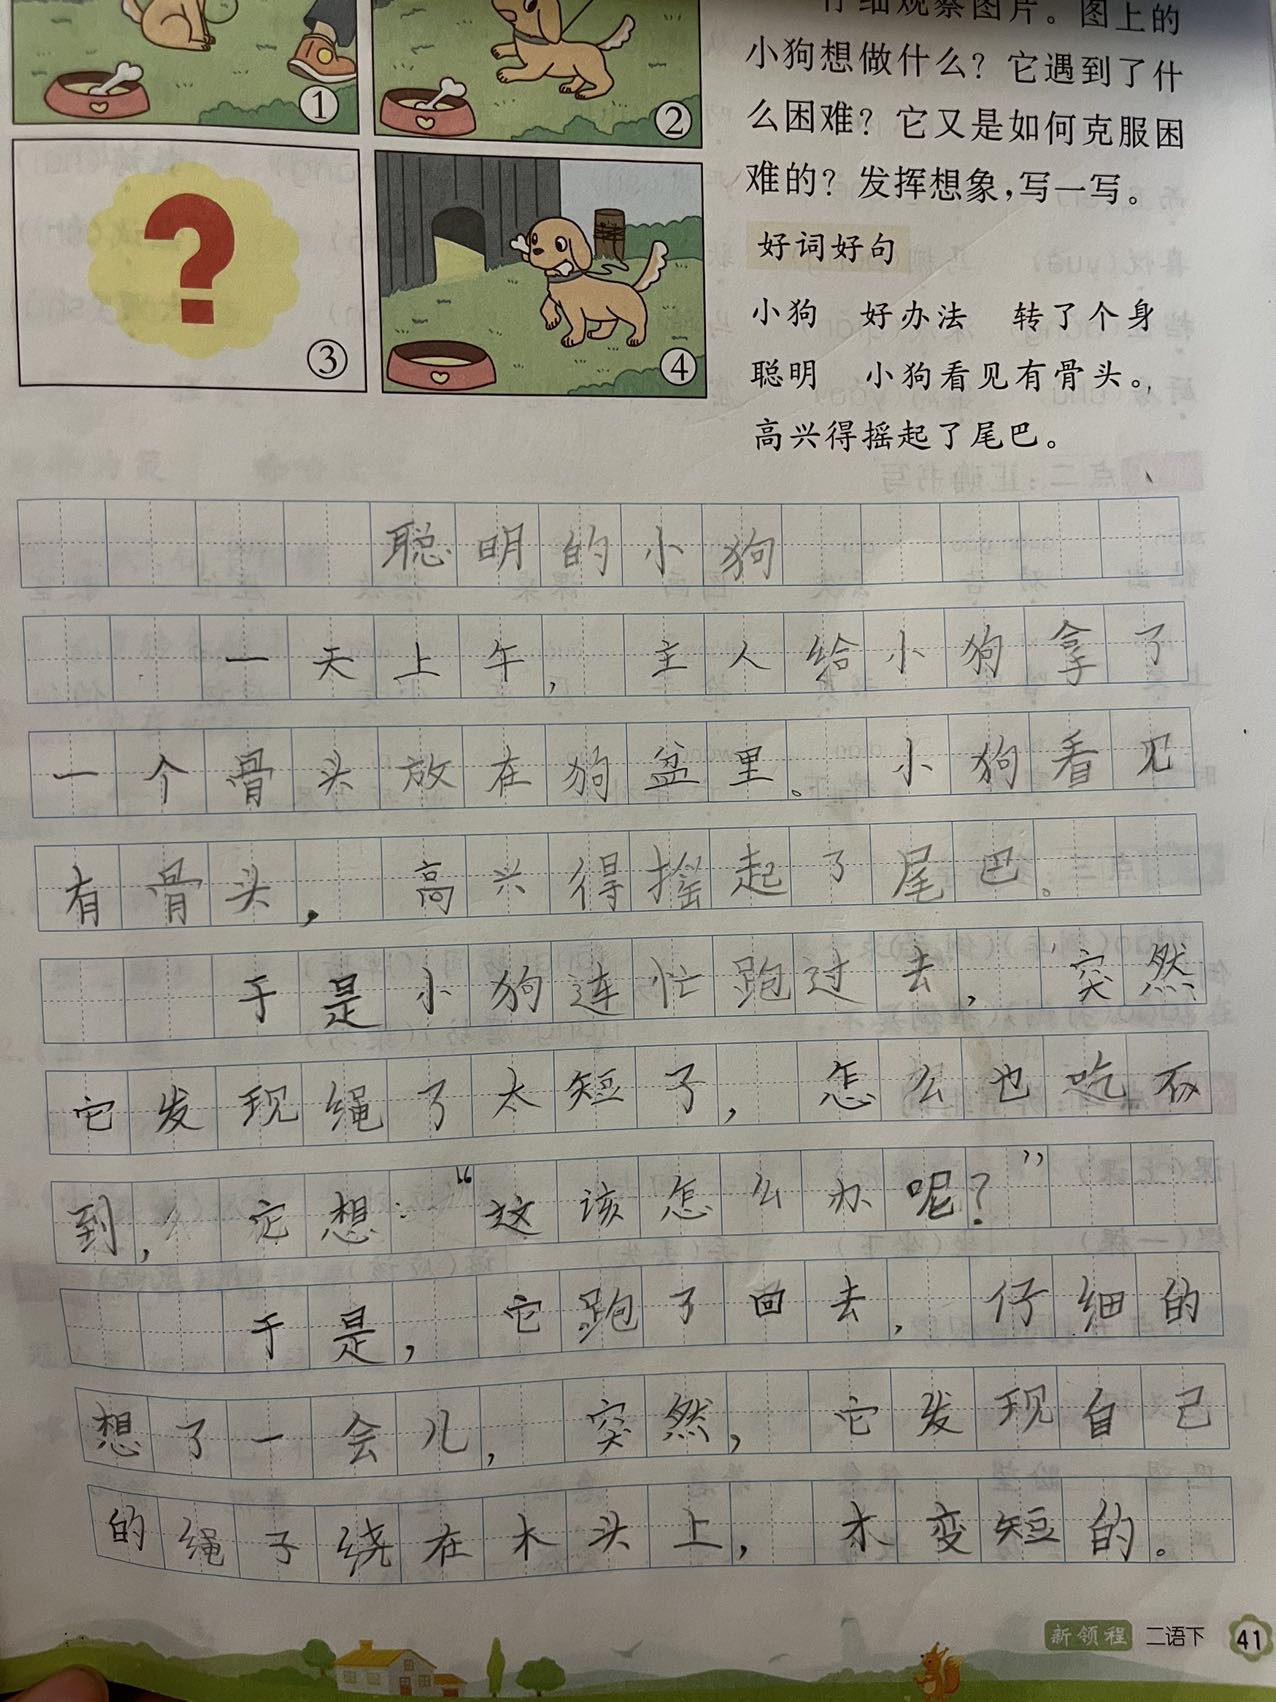 仔细观察图片。图上的
小狗想做什么？它遇到了什
么困难？它又是如何克服困
难的？发挥想象，写一写。
好词好句
小狗 好办法 转了个身
聪明 小狗看见有骨头。
高兴得摇起了尾巴。
①
②
？
③
④
聪明的小狗
一天上午，主人给小狗拿了
一个骨头放在狗盆里。小狗看见
有骨头，高兴得摇起了尾巴。
于是小狗连忙跑过去，突然
它发现绳了太短了，怎么也吃不
到，它想："这该怎么办呢？"
于是，它跑了回去，仔细的
想了一会儿，突然，它发现自己
的绳子绕在木头上，才变短的。
新领程 二语下 41